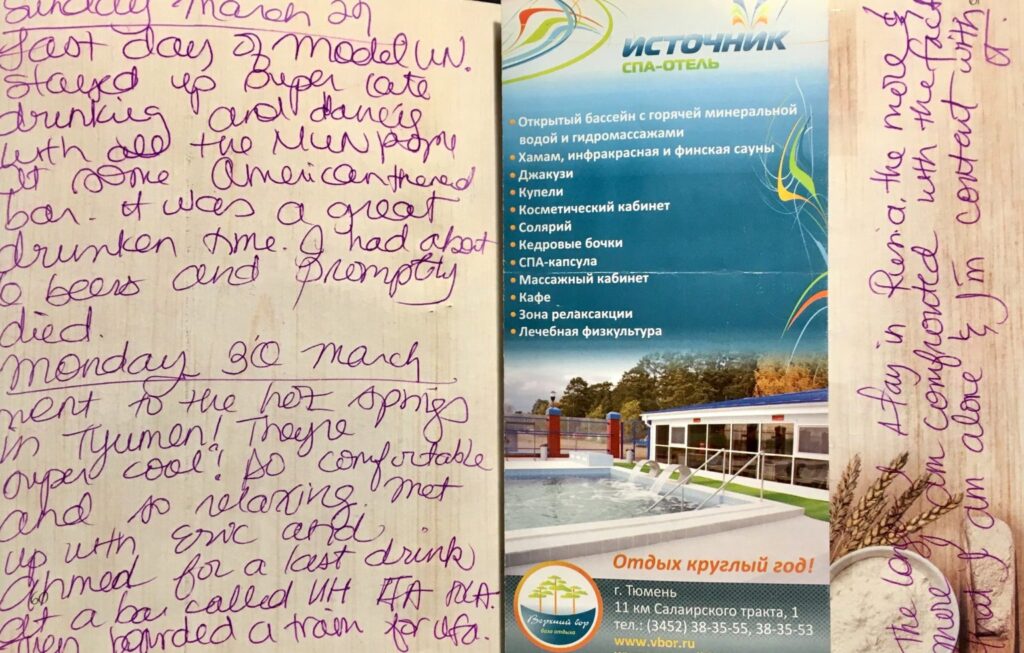 Sunday March 29
Last day of Model UN.
stayed up super late
drinking and dancing
with all the MUN people
at some American themed
bar. It was a great
drunken time. I had about
beers and promptly
died.
Monday 30 March
Went to the hot springs
in Tyumen! They're
super cool! So comfortable
and so relaxing. Met
up with Eric and
Ahmed for a last drink
at a bar called
Then boarded a train for Ufa.
ИСТОЧНИК
СПА-ОТЕЛЬ
• Открытый бассейн с горячей минеральной
водой и гидромассажами
• Хамам, инфракрасная и финская сауны
• Джакузи
• Купели
• Косметический кабинет
• Солярий
• Кедровые бочки
• СПА-капсула
• Массажный кабинет
• Кафе
• Зона релаксации
• Лечебная физкультура
Отдых круглый год!
Верхний бор
база отдыха
г. Тюмень
11 км Салаирского тракта, 1
тел.: (3452) 38-35-55, 38-35-53
www.vbor.ru
The longer I stay in Russia, the more &
more I am comfronted with the fact
that I am alone & I'm content with
it.